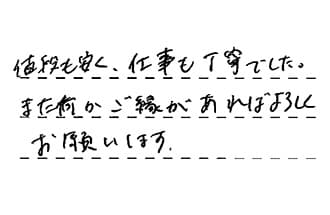 値段も安く、仕事も丁寧でした。
また何かご縁があればよろしく
お願いします.